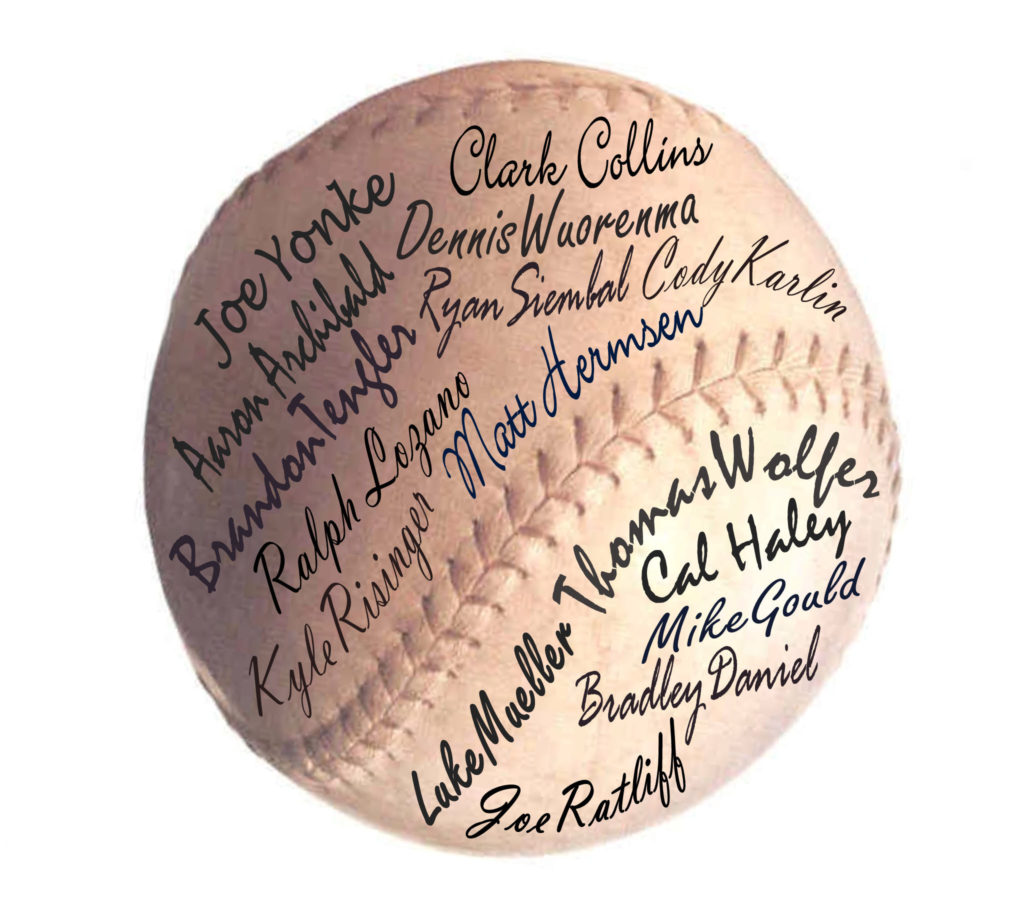 Clark Collins
Joe Yonke
Dennis Wuorenma
Aaron Archibald
Ryan Siembal
Cody Karlin
Brandon Tengler
Matt Hermsen
Ralph Lozano
Kyle Risinger
Thomas Wolfer
Cal Haley
Mike Gould
Luke Mueller
Bradley Daniel
Joe Ratliff